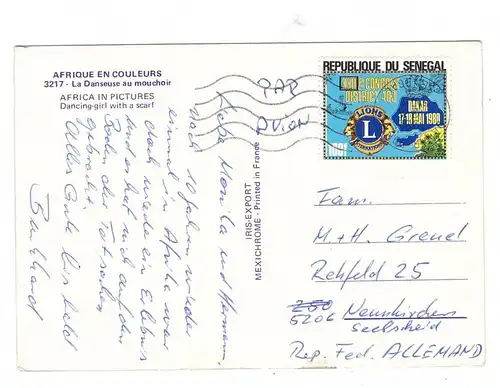 AFRIQUE EN COULEURS
3217 - La Danseuse au mouchoir
AFRICA IN PICTURES
Dancing-girl with a scarf
PAR
AVION
REPUBLIQUE DU SENEGAL
CONGRES
DISTRICT 403
DAKAR
17-18 MAI 1980
LIONS
L
INTERNATIONAL
100F
IRIS-EXPORT
MEXICHROME - Printed in France
Liebe Monika und Hermann,
nach 10 Jahren wieder
einmal in Afrika war
doch wieder ein Erlebnis
und hat mich auf den
Boden der Tatsachen
gebracht.
Alles Gute bis bald
Burkhard
Fam.
M. + H. Greuel
Rehfeld 25
5206 Neunkirchen
Seelscheid
Rep. Fed. ALLEMAND